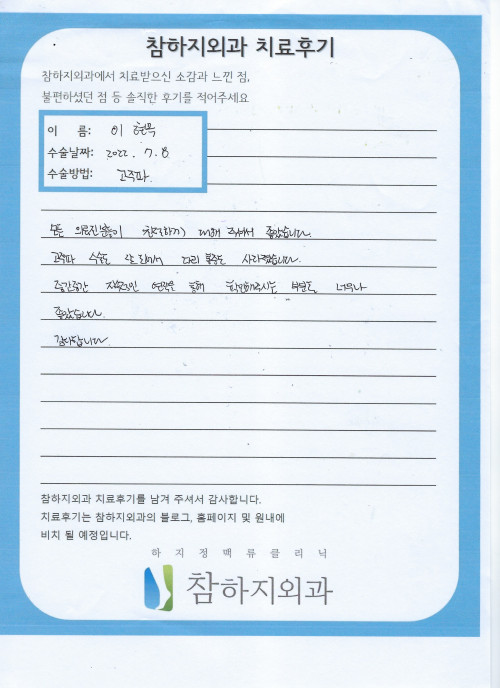 참하지외과 치료후기
참하지외과에서 치료받으신 소감과 느낀 점,
불편하셨던 점 등 솔직한 후기를 적어주세요
이 름: 이 현옥
수술날짜: 2022. 7. 8
수술방법: 고주파.
모든 의료진분들이 친절하게 대해 주셔서 좋았습니다.
고주파 수술도 잘 되어서 다리 붓기도 사라졌습니다.
중간중간 지속적인 연락을 통해 확인해주시는 부분도 너무나
좋았습니다.
감사합니다.
참하지외과 치료후기를 남겨 주셔서 감사합니다.
치료후기는 참하지외과의 블로그, 홈페이지 및 원내에
비치 될 예정입니다.
하지정맥류클리닉
참하지외과